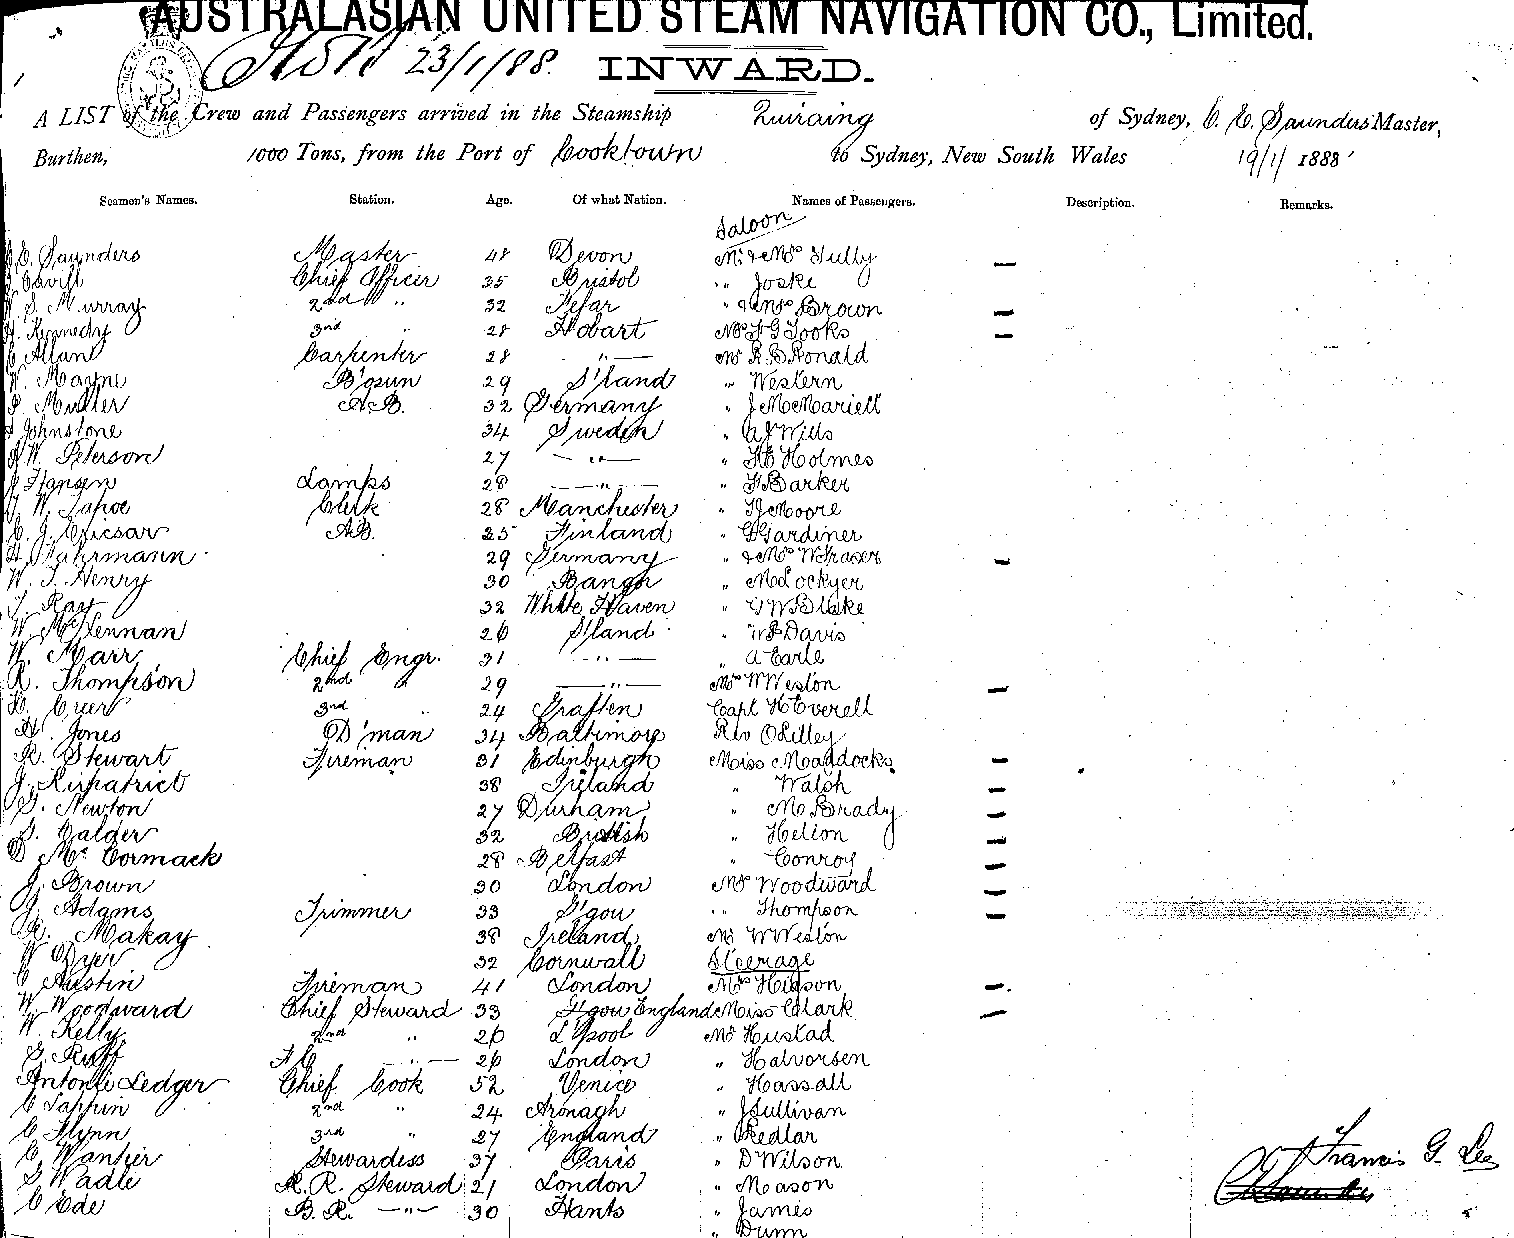 AUSTRALASIAN UNITED STEAM NAVIGATION CO., Limited.
23/1/88. INWARD.
A LIST of the Crew and Passengers arrived in the Steamship Quiraing of Sydney, C. E. Saunders Master,
Burthen, 1000 Tons, from the Port of Cooktown to Sydney, New South Wales 19/1/ 1888
Seamen's Names. Station. Age. Of what Nation. Names of Passengers. Description. Remarks.
Saloon
E. Saunders Master 48 Devon Mr & Mrs Tully —
Cavill Chief Officer 35 Bristol " Joske
W. S. Murray 2nd " 32 " & Mrs Brown —
H. Kennedy 3rd " 28 Hobart Mrs Tooks —
C Allan Carpenter 28 " — Mr R. B. Ronald
W. Mayne B'osun 29 S'land " Western
Muller A.B. 32 Germany " J McMariell
Johnstone 34 Sweden " A J Wills
W. Peterson 27 — " — " Holmes
J Hansen Lamps 28 — " — " F Barker
W. Tapoe Clerk 28 Manchester " Moore
C. J. Ericsar A.B. 25 Finland " G Gardiner
H. Fahrmann 29 Germany " & Mrs W Fraser —
W. T. Henry 30 Bangor " M Lockyer
T. Ray 32 White Haven " G W Blake
W. McLennan 26 S'land " Davis
W. Marr Chief Engr. 31 — " — " A Earle
R. Thompson 2nd " 29 — " — Mrs W Weston —
Creer 3rd " 24 Graften Capt H Everell
H. Jones D'man 34 Baltimore Rev O Lilley
R. Stewart Fireman 31 Edinburgh Miss Maddocks —
J. Kirpatrict 38 Ireland " Walsh —
G. Newton 27 Durham " McBrady —
G. Calder 32 British " Helion —
D McCormack 28 Belfast " Conroy —
J. Brown 30 London Mrs Woodward —
J. Adams Trimmer 33 G'gou " Thompson —
R. Makay 38 Ireland Mr W Weston
W Dyer 32 Cornwall Steerage
C Austin Fireman 41 London Mrs Higson —
W Woodward Chief Steward 33 G'gou England Miss Clark —
W. Kelly 2nd " 26 L'pool Mr Hustad
G. Ruff F C — " — 26 London " Halvorsen
Antonie Ledger Chief Cook 52 Venice " Hassall
C Lappin 2nd " 24 Armagh " J Sullivan
C Flynn 3rd " 27 England " Pedlar
C. Wanker Stewardess 37 Paris " D Wilson
S Wadle R. R. Steward 21 London " Meason
C Ede B.R. — " — 30 Hants " James
" Dunn
Francis G. Lee